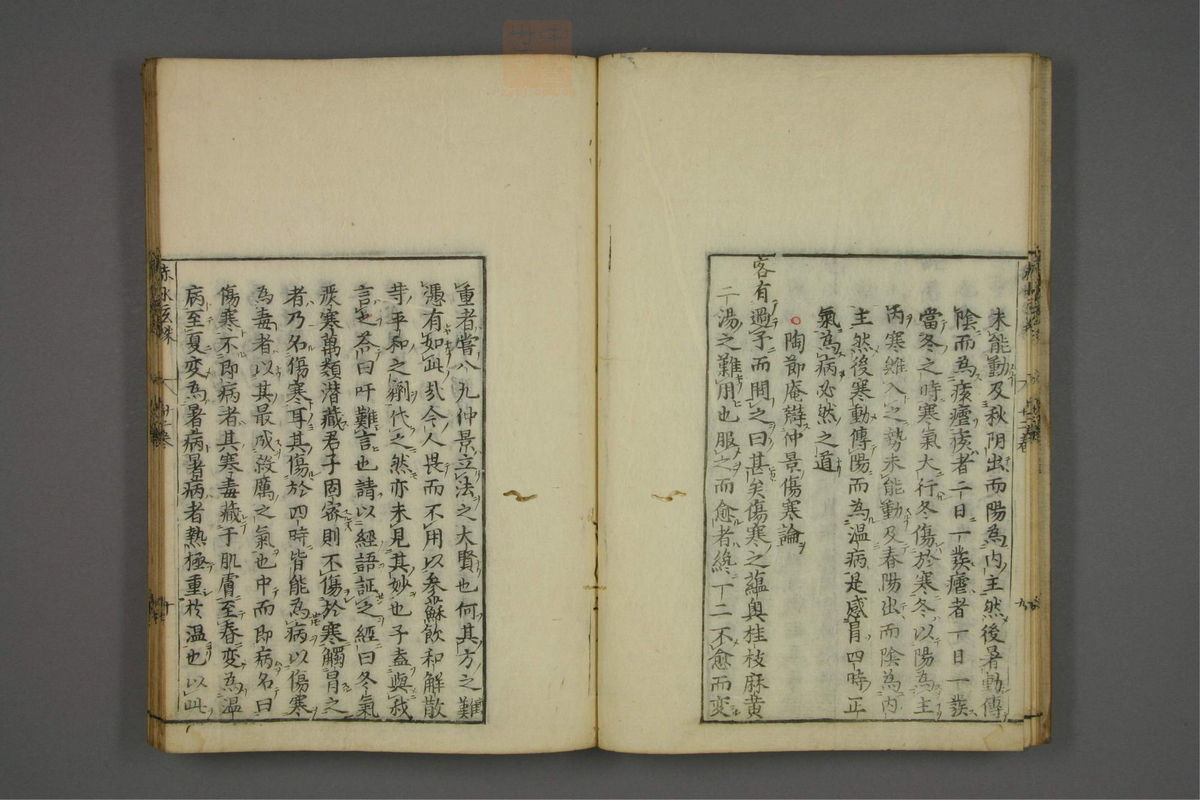 未能動及秋阴出而陽為内主然後暑動傳
陰而為痎瘧痎者二日一發瘧者一日一發
當冬之時寒氣大行冬傷於寒冬以陽為主
内寒雖入之勢未能動及春陽出而陰為内
主然後寒動傳陽而為温病是感冒四時正
氣為病必然之道
陶節庵辯仲景傷寒論
客有過予而問之曰甚矣傷寒之蘊奥桂枝麻黄
二湯之難用也服之而愈者終一二不愈而变
重者嘗八九仲景立法之大賢也何其方之難
憑有如此㢤令人畏而不用以参蘇飲和解散
等平和之劑代之然亦未見其妙也子盍與我
言之荅曰吁難言也請以經語証之經曰冬氣
嚴寒萬類潜藏君子固密則不傷於寒觸冒之
者乃名傷寒耳其傷於四時皆能為病以傷寒
為毒者以其最成殺厲之氣也中而即病名曰
傷寒不即病者其寒毒藏于肌膚至春变為温
病至夏变為暑病暑病者熱極重於温也以此
赤水玄珠